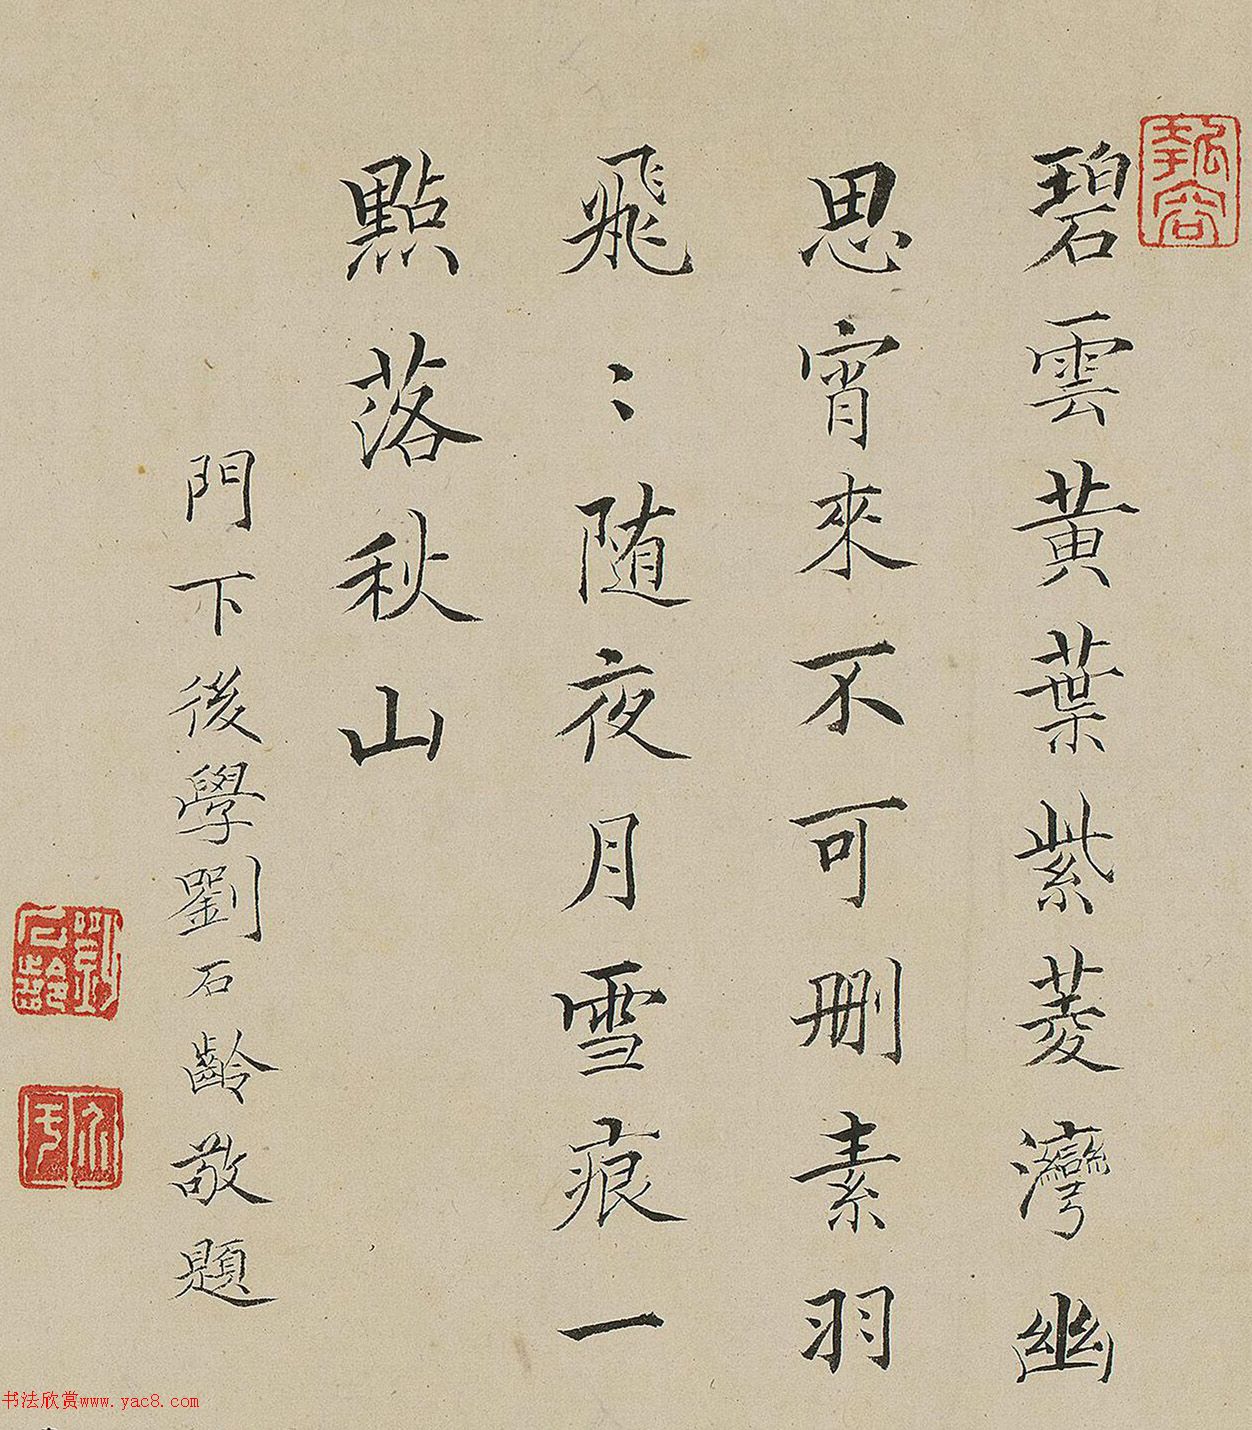 碧雲黄葉紫菱灣幽
思宵來不可刪素羽
飛〻随夜月雪痕一
點落秋山
門下後學劉石齡敬題
劉石齡
书法欣赏www.yac8.com